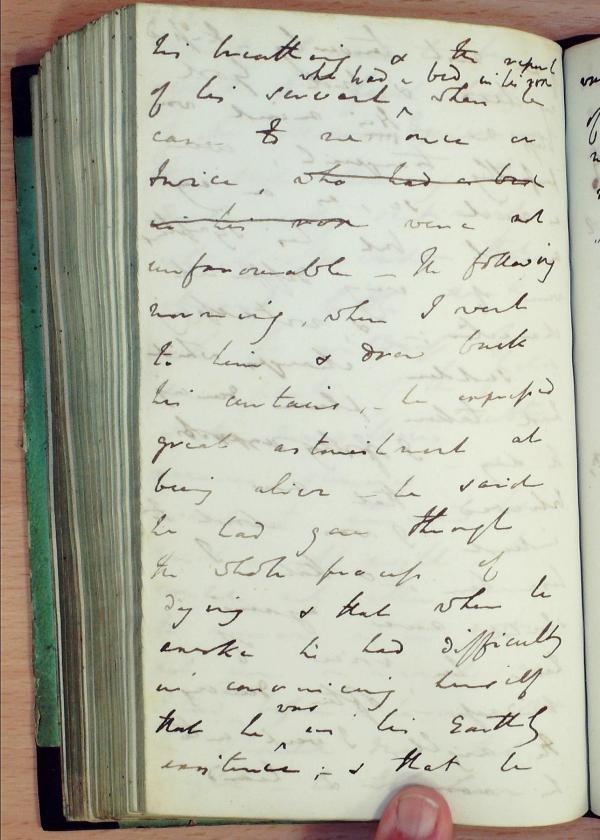 his breathing & the report
who had a bed in his room
of his servant ^ when he
came to me once or
twice, who had a bed
in his room were not
unfavourable – The following
morning, when I went
to him & drew back
his curtains, – he expressed
great astonishment at
being alive – he said
he had gone through
the whole process of
dying & that when he
awoke he had difficulty
in convincing himself
was
that he ^ in his Earthly
existence ; – & that he